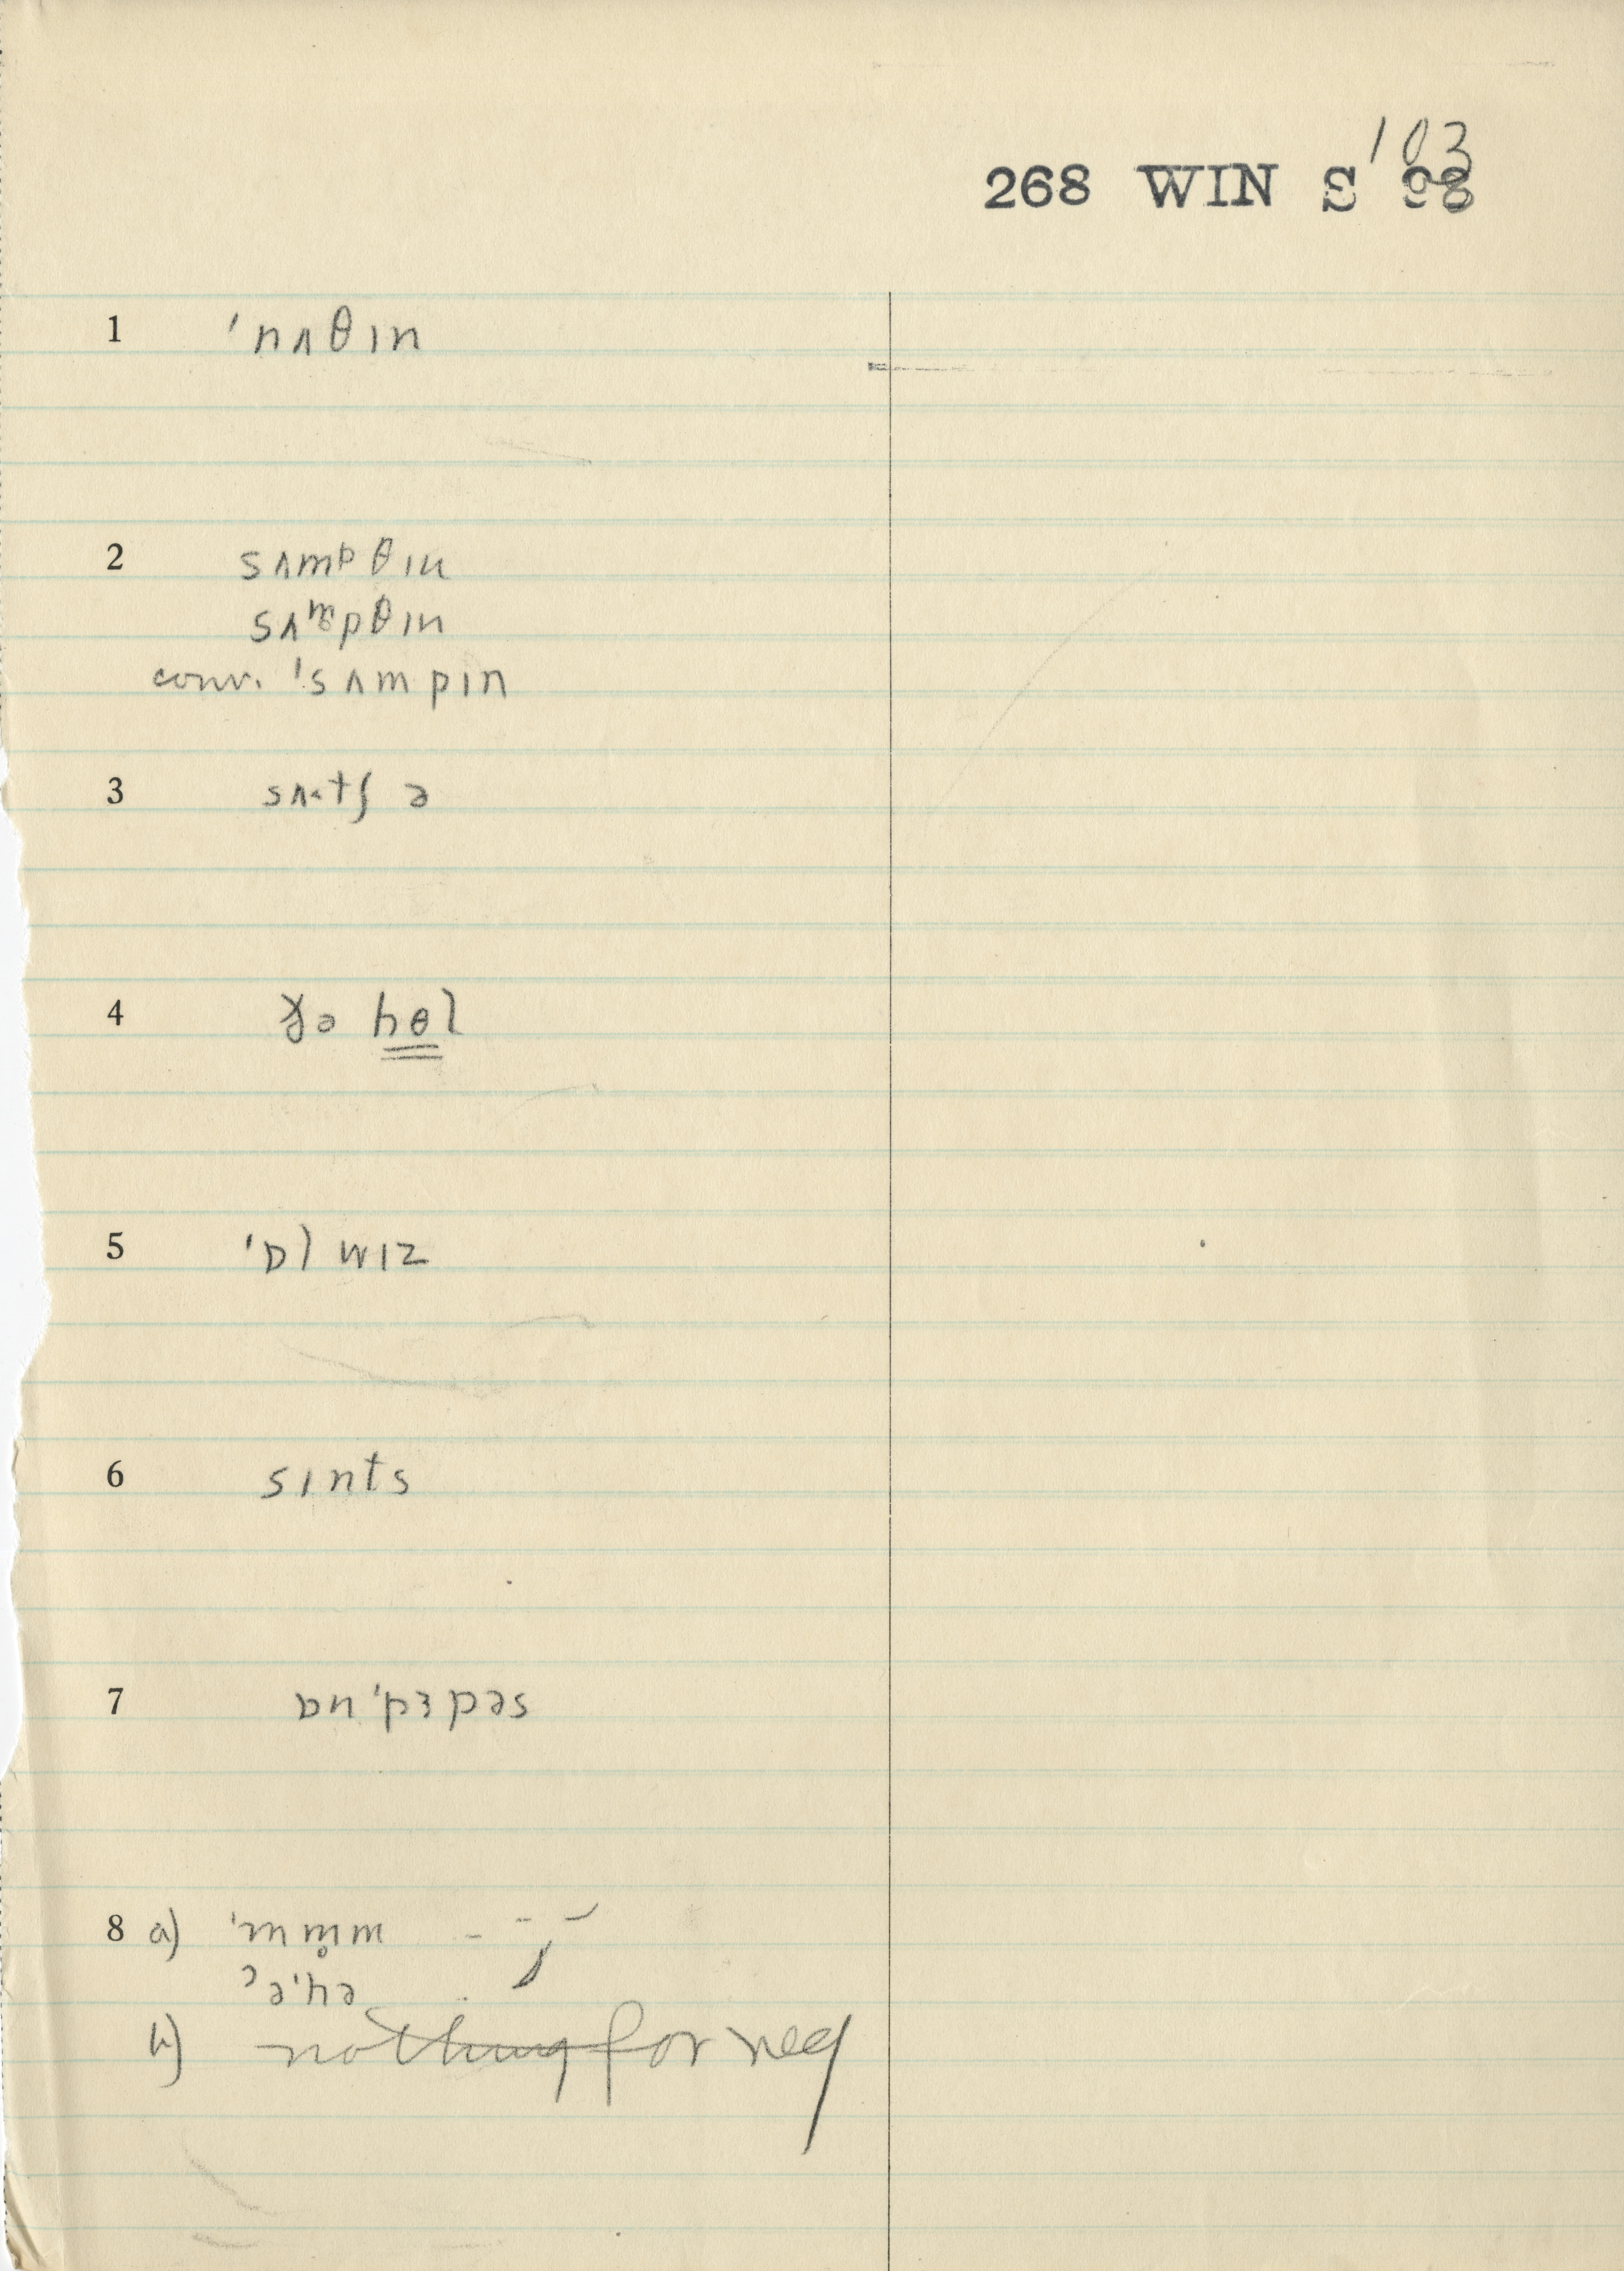 103
268 WIN S 98
1 ˈnʌθɪn
2 sʌmᵖθɪn
sʌᵐpθɪn
conv. ˈsʌmpɪn
3 sʌ˔tʃ ə
4 hɵl
5 ˈɒlwɪz
6 sɪnts
7 ɒn ˈpɜpəs
8 a) ˈmm̥m
ʔəˈhə
b) nothing for neg